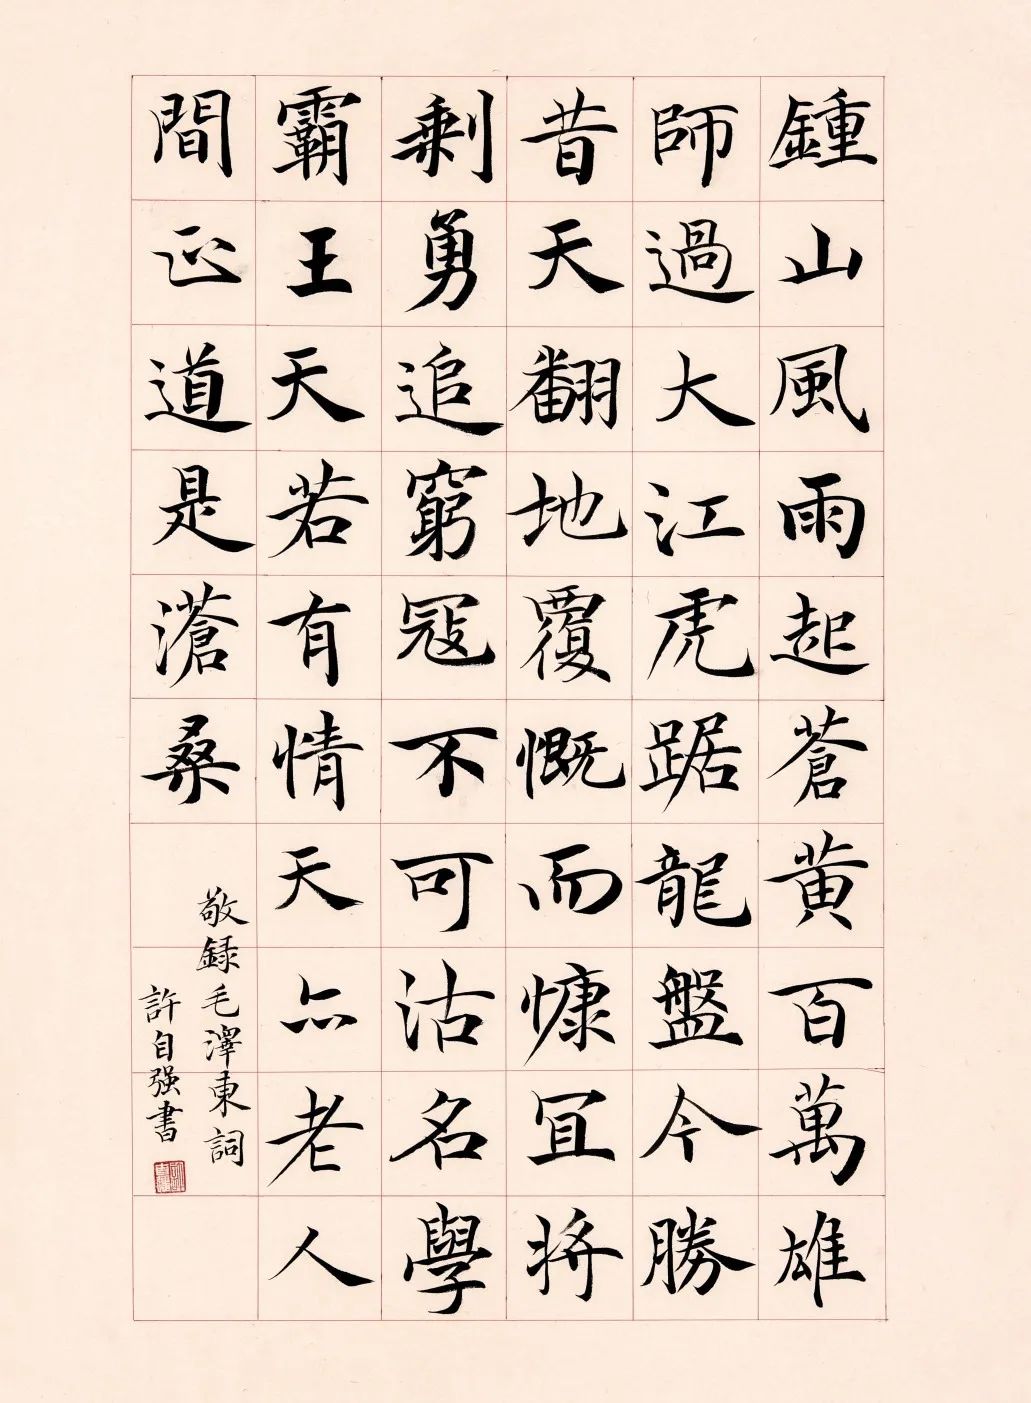 鍾山風雨起蒼黄百萬雄
師過大江虎踞龍盤今勝
昔天翻地覆慨而慷宜將
剩勇追窮寇不可沽名學
霸王天若有情天亦老人
間正道是滄桑
敬録毛澤東詞
許自强書